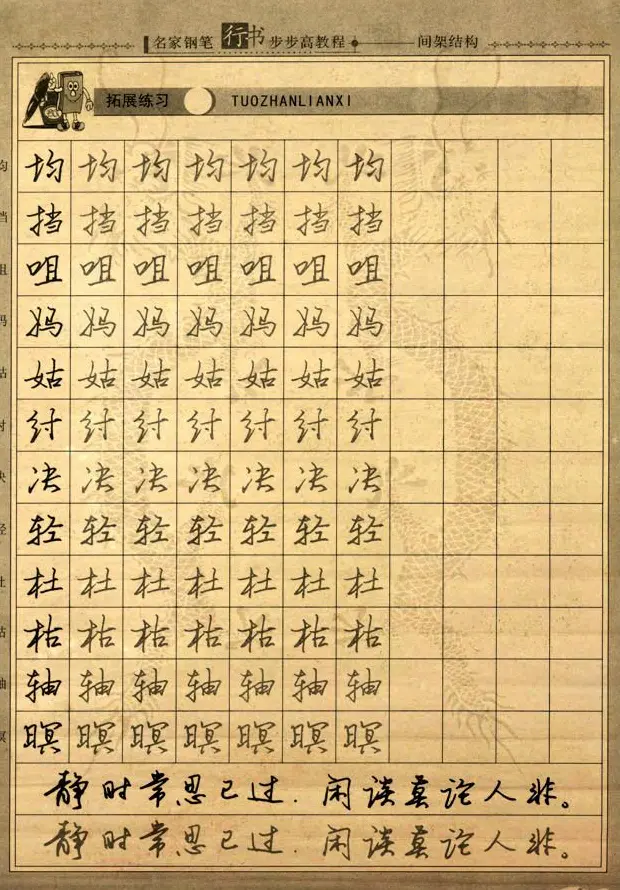 名家钢笔行书步步高教程 间架结构
拓展练习 TUOZHANLIANXI
均 均 均 均 均 均 均 均
挡 挡 挡 挡 挡 挡 挡 挡
咀 咀 咀 咀 咀 咀 咀 咀
妈 妈 妈 妈 妈 妈 妈 妈
姑 姑 姑 姑 姑 姑 姑 姑
纣 纣 纣 纣 纣 纣 纣
决 决 决 决 决 决 决 决
轻 轻 轻 轻 轻 轻 轻
杜 杜 杜 杜 杜 杜 杜
枯 枯 枯 枯 枯 枯 枯
轴 轴 轴 轴 轴 轴 轴
暝 暝 暝 暝 暝 暝 暝
静时常思己过.闲谈莫论人非。
静时常思己过.闲谈莫论人非。